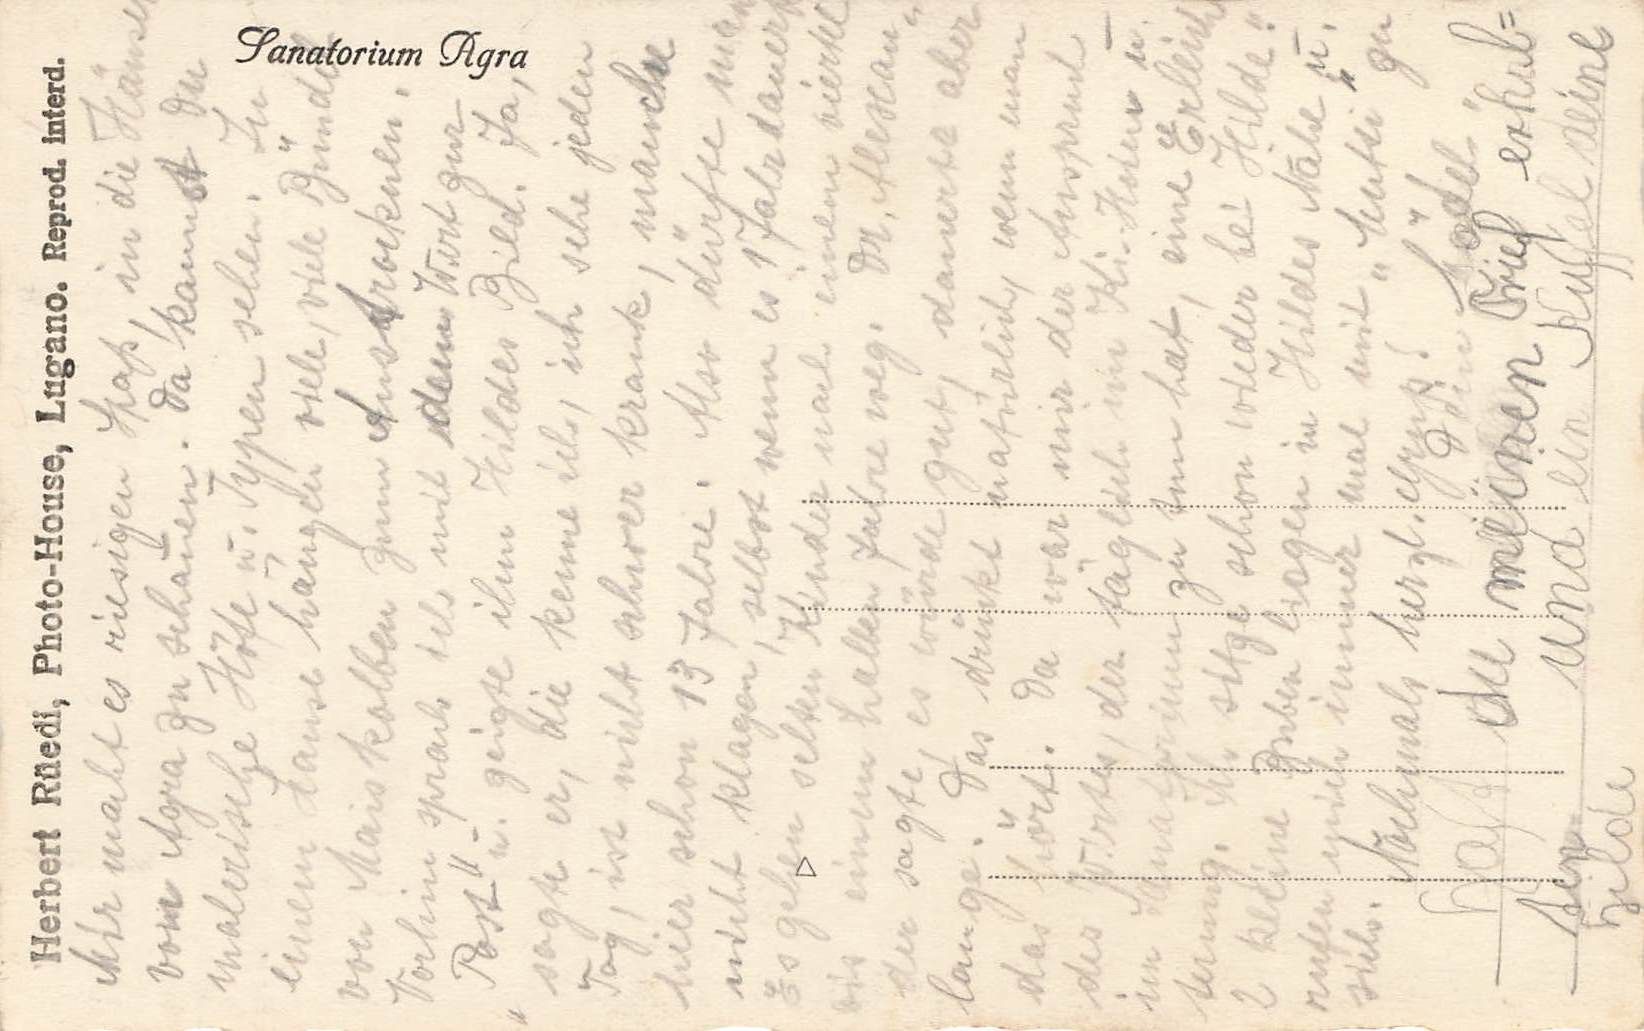 Sanatorium Agra
Herbert Rüedi, Photo-House, Lugano. Reprod. interd.
mir macht es riesigen Spaß, in die Häuser
von Agra zu schauen. Da kannst Du
malerische Höfe u. Typen sehen. In
einem Hause hängen viele, viele Bündel
von Maiskolben zum Austrocknen.
Vorhin sprach ich mit dem Wirt zur
"Post" u. zeigte ihm Hildes Bild. Ja,
sagte er, die kenne ich, ich sehe jeden
Tag, ist nicht schwer krank, manche
hier schon 13 Jahre. Also dürfte man
nicht klagen, selbst wenn es 1 Jahr dauert.
Es gehen selten Kinder nach einem viertel
bis einem halben Jahre weg. Dr. Alexan-
der sagte, es würde gut, dauerte aber
lange. Das drückt natürlich, wenn man
das hört. Da war mir der Ausspruch
des Wirtes, der täglich im Ki.-Heim u.
im Sanatorium zu tun hat, eine Erleich-
terung. Ich sitze schon wieder bei Hilde.
2 kleine Buben liegen in Hildes Nähe u.
rufen mich immer mal mit "Mutti" zu
sich. Nochmals herzl. Gruß!
Dein Mädel
Hast Du meinen Brief erhal=
ten
und ein Kußel deine
Hilde